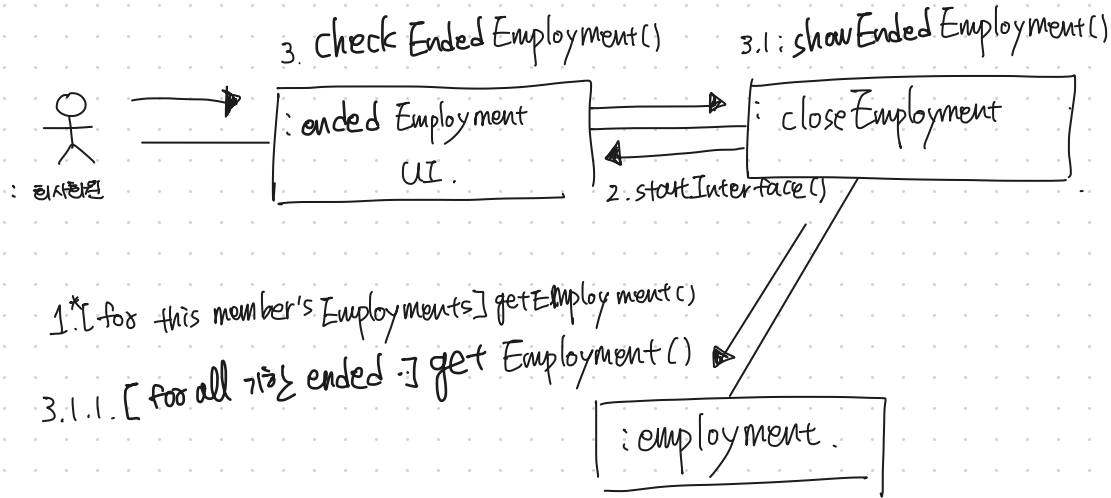 3. check Ended Employment()
3.1 : showEnded Employment()
: ended Employment
UI.
: closeEmployment
: 회사회원
2. startInterface()
1*[for this member's Employments] getEmployment()
3.1.1. [for all 기한 ended .] get Employment()
: employment.